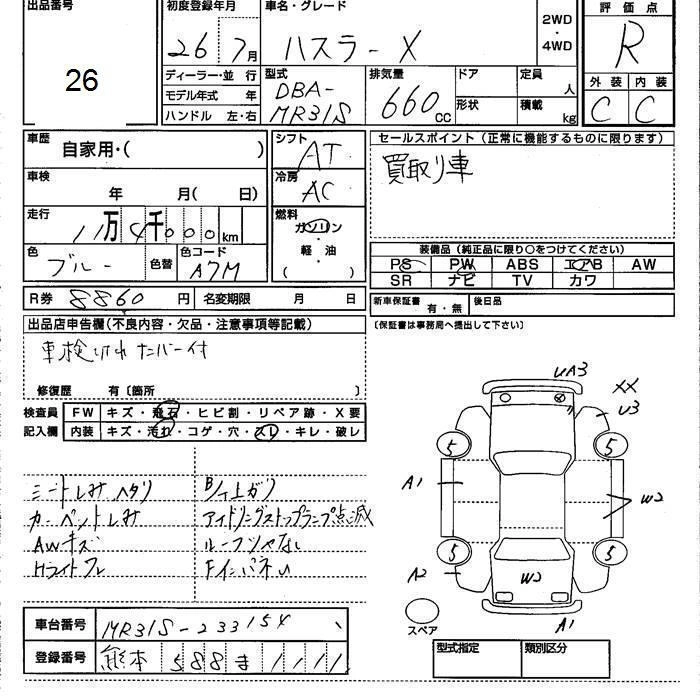 出品番号
26
初度登録年月
26 7月
車名・グレード
ハスラーX
2WD
・
4WD
評価点
R
外装 内装
C C
ディーラー・並 行
モデル年式 年
ハンドル 左・右
型式
DBA-
MR31S
排気量
660cc
ドア
形状
定員 人
積載 kg
車歴
自家用・( )
車検
年 月( 日)
走行
11万4千000km
色
ブルー
色替
色コード
A7M
シフト
AT
冷房
AC
燃料
ガソリン
・
軽・油
( )
セールスポイント(正常に機能するものに限ります)
買取り車
装備品(純正品に限り○をつけてください)
PS PW ABS エアB AW
SR ナビ TV カワ
R券 8860円
名変期限 月 日
新車保証書 有・無
後日品
(保証書は事務局へ提出して下さい)
出品店申告欄(不良内容・欠品・注意事項等記載)
車検切れ ナンバー付
修復歴 有〔箇所 〕
検査員
記入欄
FW キズ・飛石・ヒビ割・リペア跡・X要
内装 キズ・汚れ・コゲ・穴・スレ・キレ・破レ
シートしみヘタリ
カーペットしみ
AWキズ
Hライトクレ
アイドリングストップランプ点滅
UA3
XX
U3
5 5
A1
W2
5 5
A2
W2
A1
スペア
車台番号 MR31S-233154
登録番号 熊本 588ま1111
型式指定 類別区分